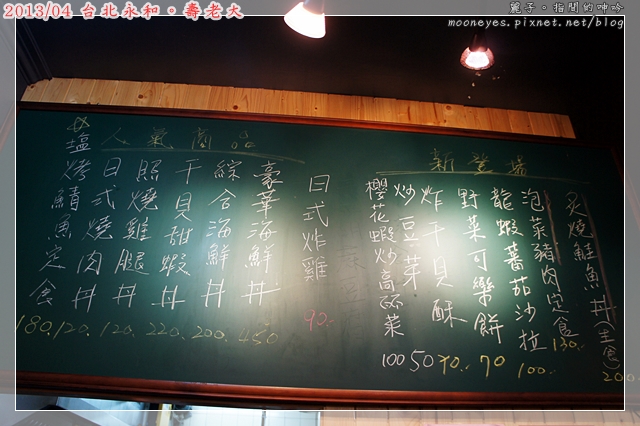 2013/04 台北永和。壽老大
麗子。指間的呻吟
mooneyes.pixnet.net/blog
人氣商品
豪華海鮮丼 450
綜合海鮮丼 200.
干貝甜蝦丼 220.
照燒雞腿丼 120.
日式燒肉丼 120.
塩烤鯖魚定食 180.
日式炸雞 90.-
新登場
炙燒鮭魚丼(生食) 200
泡菜豬肉定食 130.-
龍蝦蕃茄沙拉 100.-
野菜可樂餅 70
炸干貝酥 70.-
炒豆芽 50
櫻花蝦炒高麗菜 100